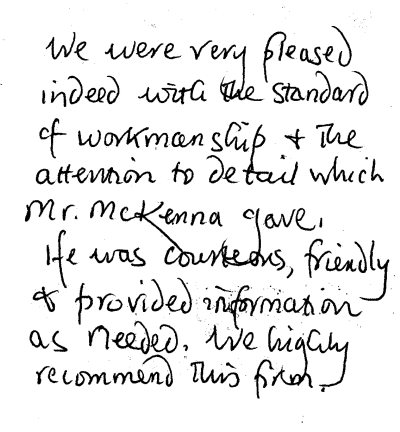 We were very pleased
indeed with the standard
of workmanship & the
attention to detail which
Mr. McKenna gave.
He was courteous, friendly
& provided information
as needed. We highly
recommend this firm.